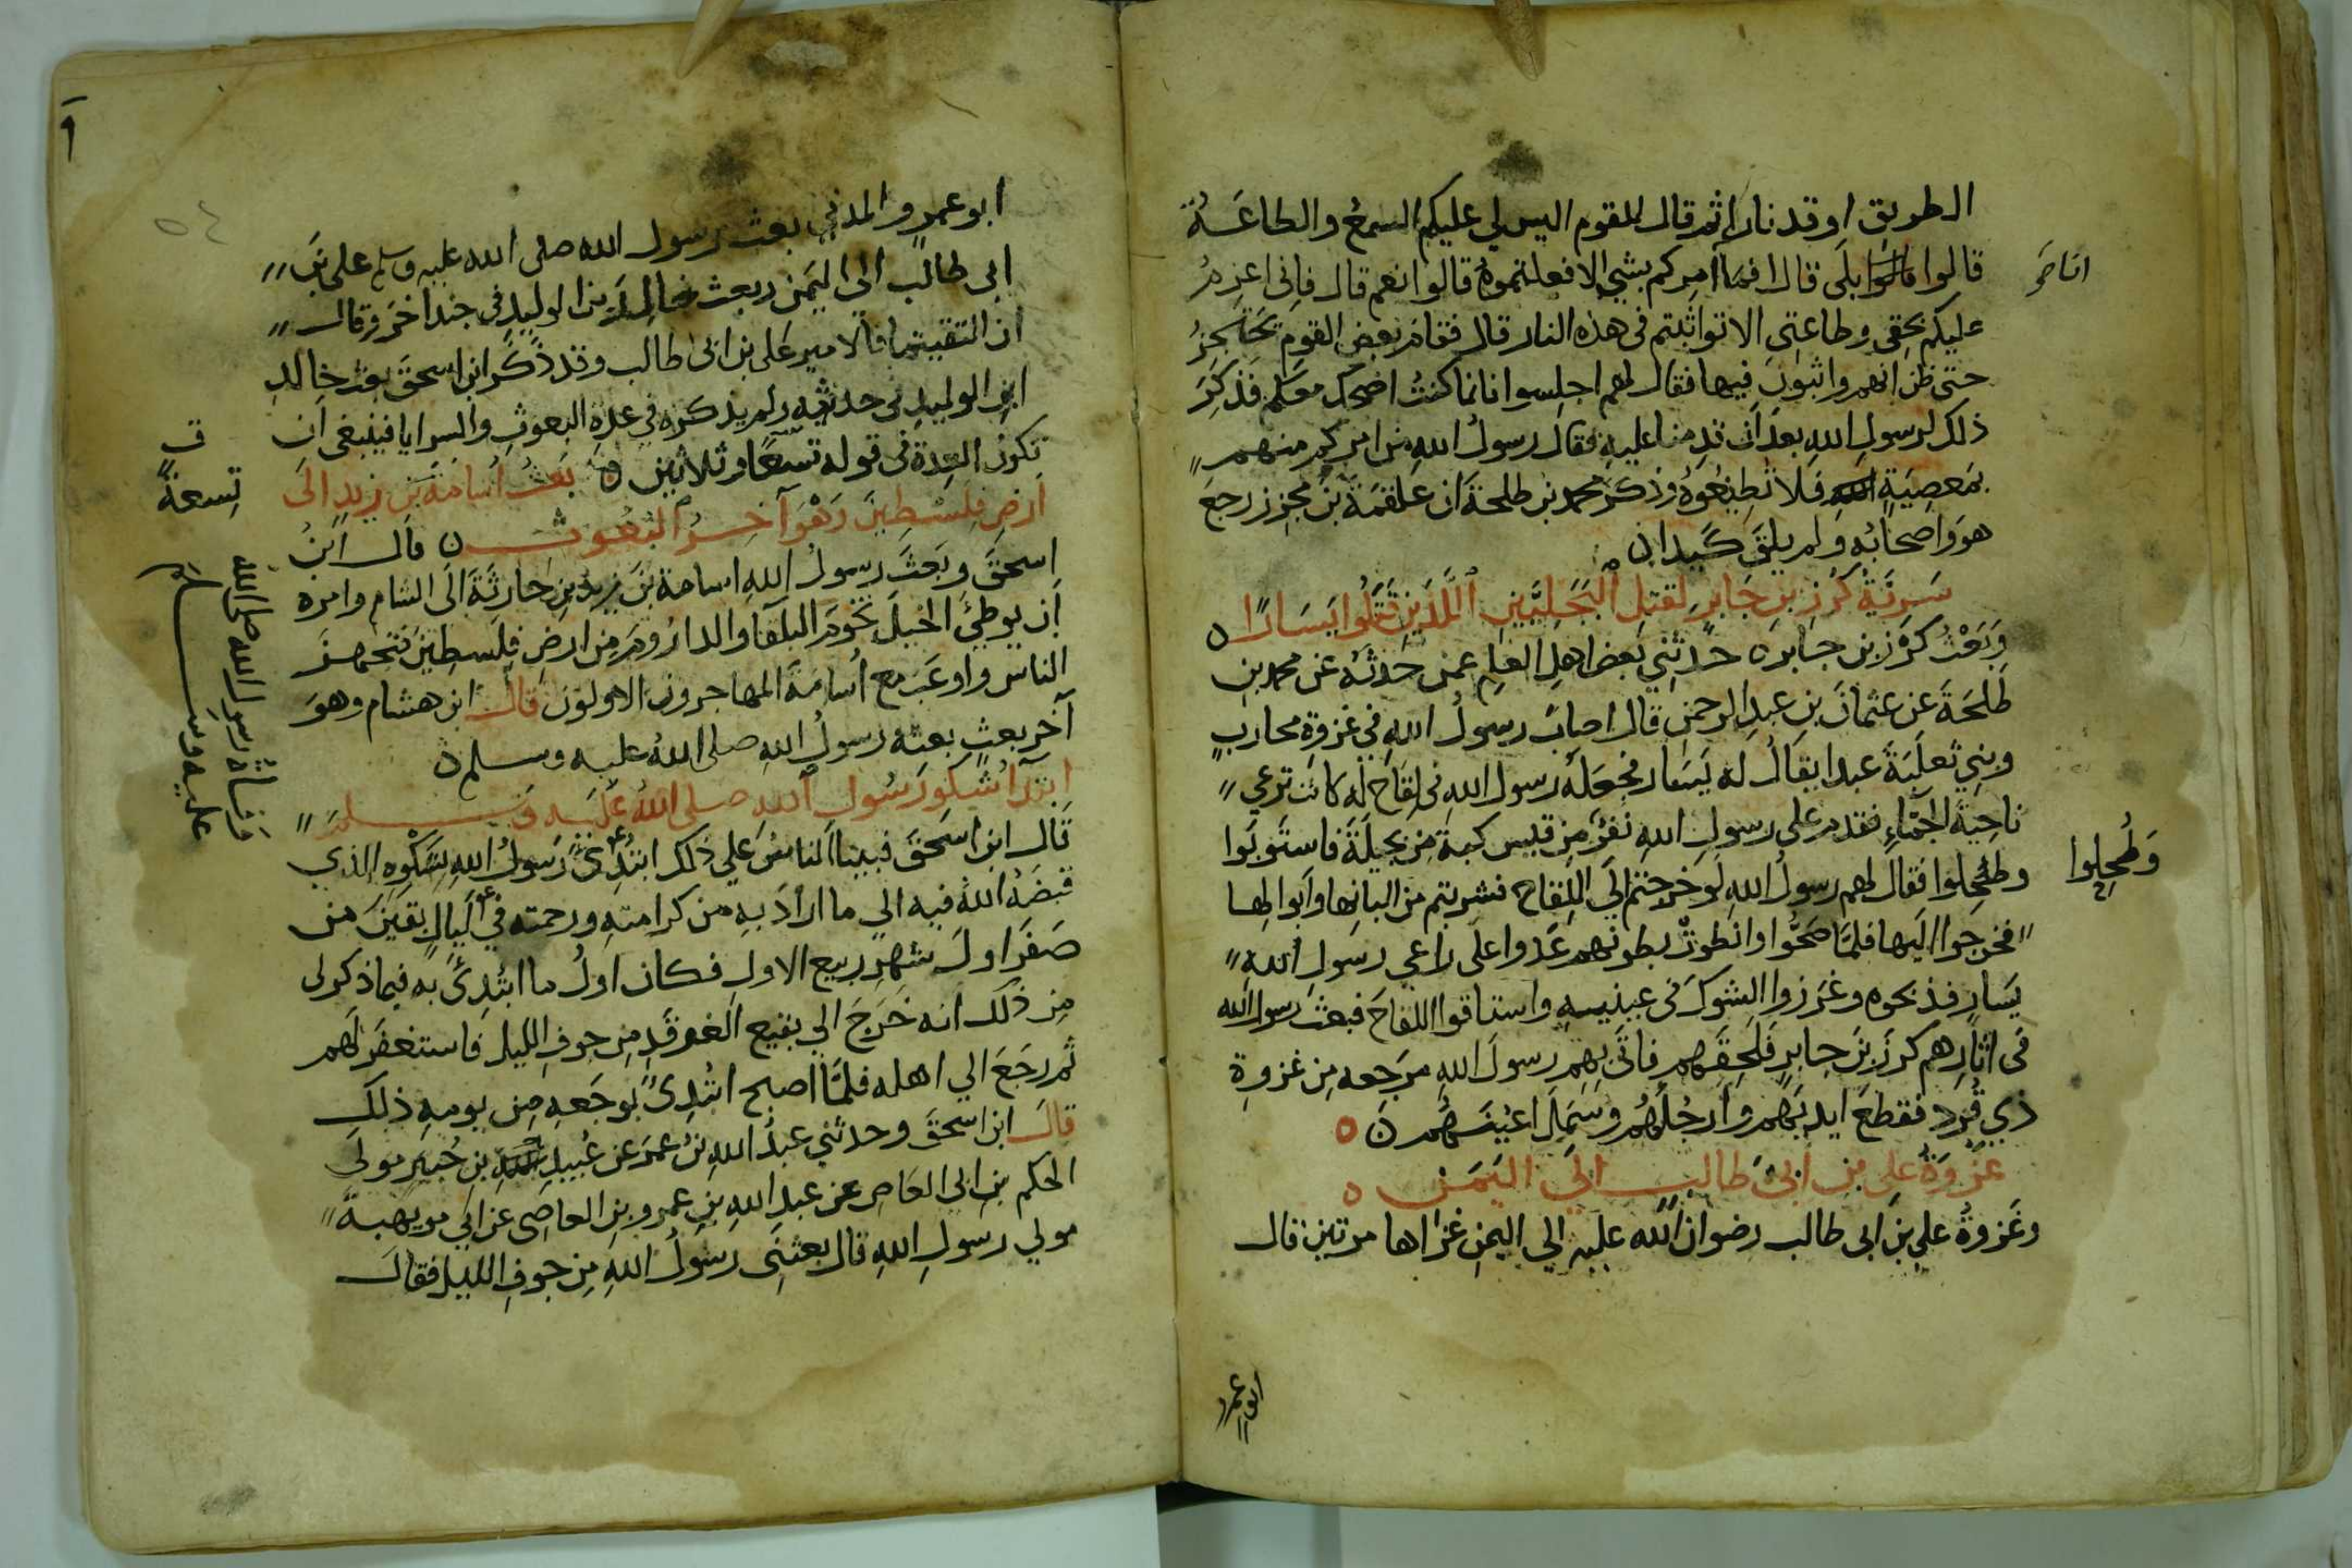 الطريق اوقد نارا ثم قال للقوم اليس لي عليكم السمع والطاعة
قالوا بلى قال افما امركم بشي الا فعلتموه قالوا نعم قال فاني اعزم
عليكم بحقي وطاعتي الا تواثبتم في هذه النار قال فقام بعض القوم يحتجز
حتى ظن انهم واثبون فيها فقال لهم اجلسوا فانما كنت اضحك معكم فذكر
ذلك لرسول الله بعد ان قدمنا عليه فقال رسول الله من امركم منهم
بمعصية الله فلا تطيعوه وذكر محمد بن طلحة ان علقمة بن مجزز رجع
هو واصحابه ولم يلق كيدا
سرية كرز بن جابر لقتل البجليين الذين قتلوا يسارا
وبعث كرز بن جابر حدثني بعض اهل العلم عمن حدثه عن محمد بن
طلحة عن عثمان بن عبد الرحمن قال اصاب رسول الله في غزوة محارب
وبني ثعلبة عبدا يقال له يسار فجعله رسول الله في لقاح له كانت ترعي
ناحية الجماء فقدم على رسول الله نفر من قيس كبة من بجيلة فاستوبوا
وطحلوا فقال لهم رسول الله لو خرجتم الى اللقاح فشربتم من البانها وابوالها
فخرجوا اليها فلما صحوا وانطوت بطونهم عدوا على راعي رسول الله
يسار فذبحوه وغرزوا الشوك في عينيه واستاقوا اللقاح فبعث رسول الله
في اثارهم كرز بن جابر فلحقهم فاتى بهم رسول الله مرجعه من غزوة
ذي قرد فقطع ايديهم وارجلهم وسمل اعينهم
غزوة على بن ابى طالب الى اليمن
وغزوة علي بن ابى طالب رضوان الله عليه الي اليمن غزاها مرتين قال
وطحلوا
ابو عمرو
ابو عمرو المدني بعث رسول الله صلى الله عليه وسلم على بن
ابى طالب الي اليمن وبعث خالد بن الوليد في جند اخر وقال
ان التقيتما فالامير على بن ابى طالب وقد ذكر ابن اسحق بعث خالد
ابن الوليد في حديثه ولم يذكره في عدة البعوث والسرايا فينبغى ان
تكون العدة في قوله تسعا وثلاثين بعث اسامة بن زيد الى
ارض فلسطين وهو آخر البعوث قال ابن
اسحق وبعث رسول الله اسامة بن زيد بن حارثة الى الشام وامره
ان يوطئ الخيل تخوم البلقا والداروم من ارض فلسطين فتجهز
الناس واوعب مع اسامة المهاجرون الاولون قال ابن هشام وهو
آخر بعث بعثه رسول الله صلى الله عليه وسلم
ابتدا شكو رسول الله صلى الله عليه وسلم
قال ابن اسحق فبينا الناس علي ذلك ابتدئ رسول الله بشكوه الذي
قبضه الله فيه الي ما اراد به من كرامته ورحمته في ليال بقين من
صفر او في اول شهر ربيع الاول فكان اول ما ابتدئ به فيما ذكر لى
من ذلك انه خرج الي بقيع الغرقد من جوف الليل فاستغفر لهم
ثم رجع الي اهله فلما اصبح ابتدئ بوجعه من يومه ذلك
قال ابن اسحق وحدثني عبد الله بن عمر عن عبيد بن جبير مولى
الحكم بن ابي العاص عن عبد الله بن عمرو بن العاصى عن ابي مويهبة
مولي رسول الله قال بعثنى رسول الله من جوف الليل فقال
تسعة
وفاة رسول الله صلى الله
عليه وسلم
٥٤